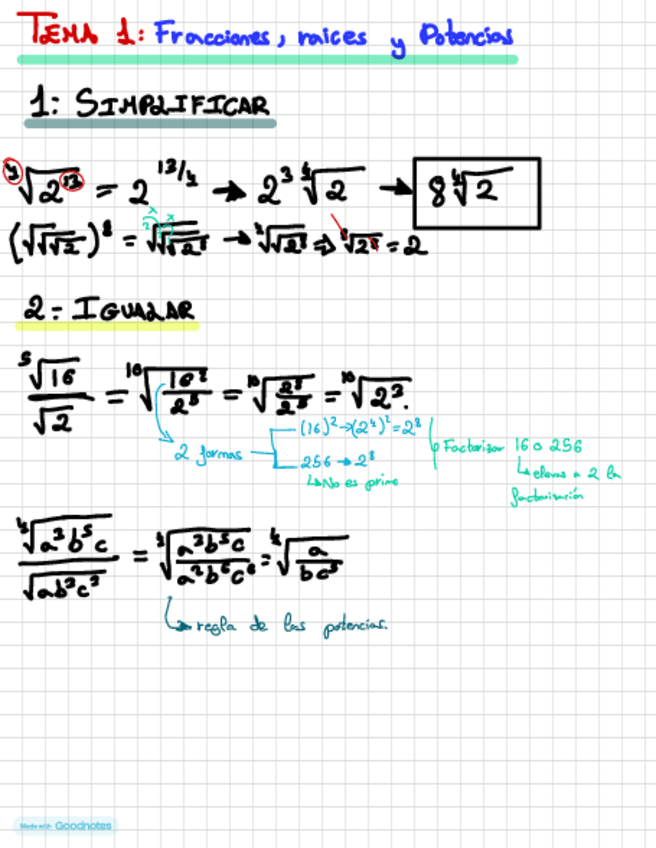 TEMA 1: Fracciones, raices y Potencias
1: SIMPLIFICAR
⁴√2¹³ = 2^13/4 → 2³ ⁴√2 → 8 ⁴√2
(√√√2)⁸ = √√√2⁸ → ⁴√√2⁸ ⇒ ⁸√2⁸ = 2
2: IGUALAR
⁵√16 / √2 = ¹⁰√(16²/2⁵) = ¹⁰√(2⁸/2⁵) = ¹⁰√2³.
2 formas
(16)² → (2⁴)² = 2⁸
256 → 2⁸
↳ No es primo
↳ Factorizar 16 o 256
↳ elevas a 2 la
factorización
⁴√a³b⁵c / √ab³c³ = ⁴√(a³b⁵c / a²b⁶c⁶) = ⁴√(a / bc⁵)
↳ regla de las potencias.
Made with Goodnotes